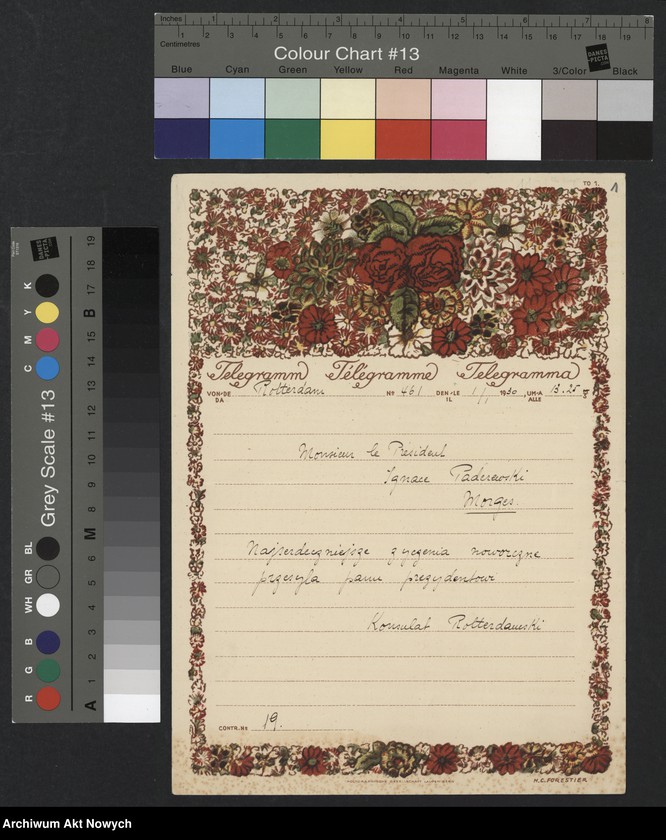 Inches 1 2 3 4 5 6 7 8
Centimetres 1 2 3 4 5 6 7 8 9 10 11 12 13 14 15 16 17 18 19
Colour Chart #13
DANES PICTA
Blue Cyan Green Yellow Red Magenta White 3/Color Black
Grey Scale #13
DANES PICTA
R G B WH GR BL C M Y K
A 1 2 3 4 5 6 M 8 9 10 11 12 13 14 15 B 17 18 19
TO 1.
1
Telegramm Télégramme Telegramma
VON-DE DA Rotterdam No 461 DEN-LE IL 1/1 1930 UM-A ALLE 13.25
Monsieur le Président
Ignace Paderewski
Morges.
Najserdeczniejsze życzenia noworoczne
przesyła panu prezydentowi
Konsulat Rotterdamski
CONTR. No 19.
H.C. FORESTIER
Archiwum Akt Nowych